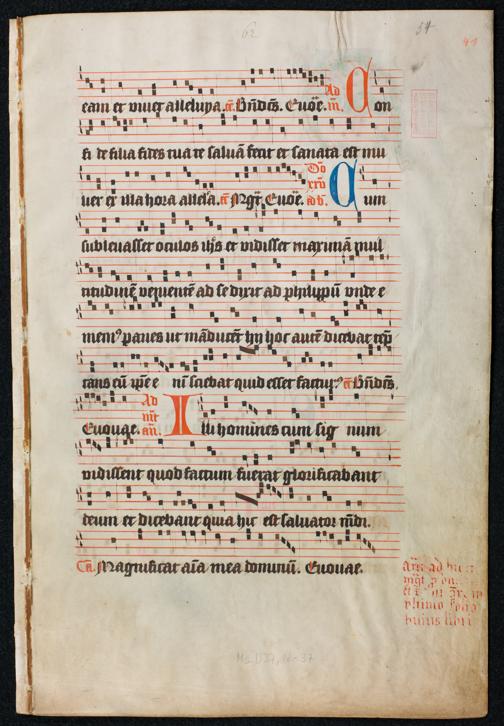 62
54
eam et viuet alleluya. Bndūs. Euoe. Ad m̄. Con
fi de filia fides tua te saluā fecit et sanata est mu
lier ex illa hora allela. Mgt. Euoe. Cum
subleuasset oculos ihs et vidisset maximā mul
titudinē venientē ad se dixit ad philippū vnde e
memꝰ panes ut māducēt hij hoc autē dicebat
tans eū ipse e nī sciebat quid esset facturꝰ Bndūs.
Euouae. Ad an̄. Illi homines cum sig num
vidissent quod factum fuerat glorificabant
deum et dicebant quia hic est saluator mūdi.
Magnificat aīa mea dominū. Euouae.
huius libri